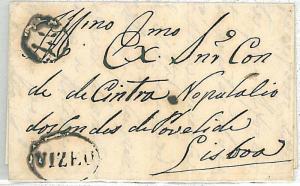 Illmo Exmo
Snr Con
de de Cintra No palacio
dos Condes de Povolide
Lisboa
VIZEU